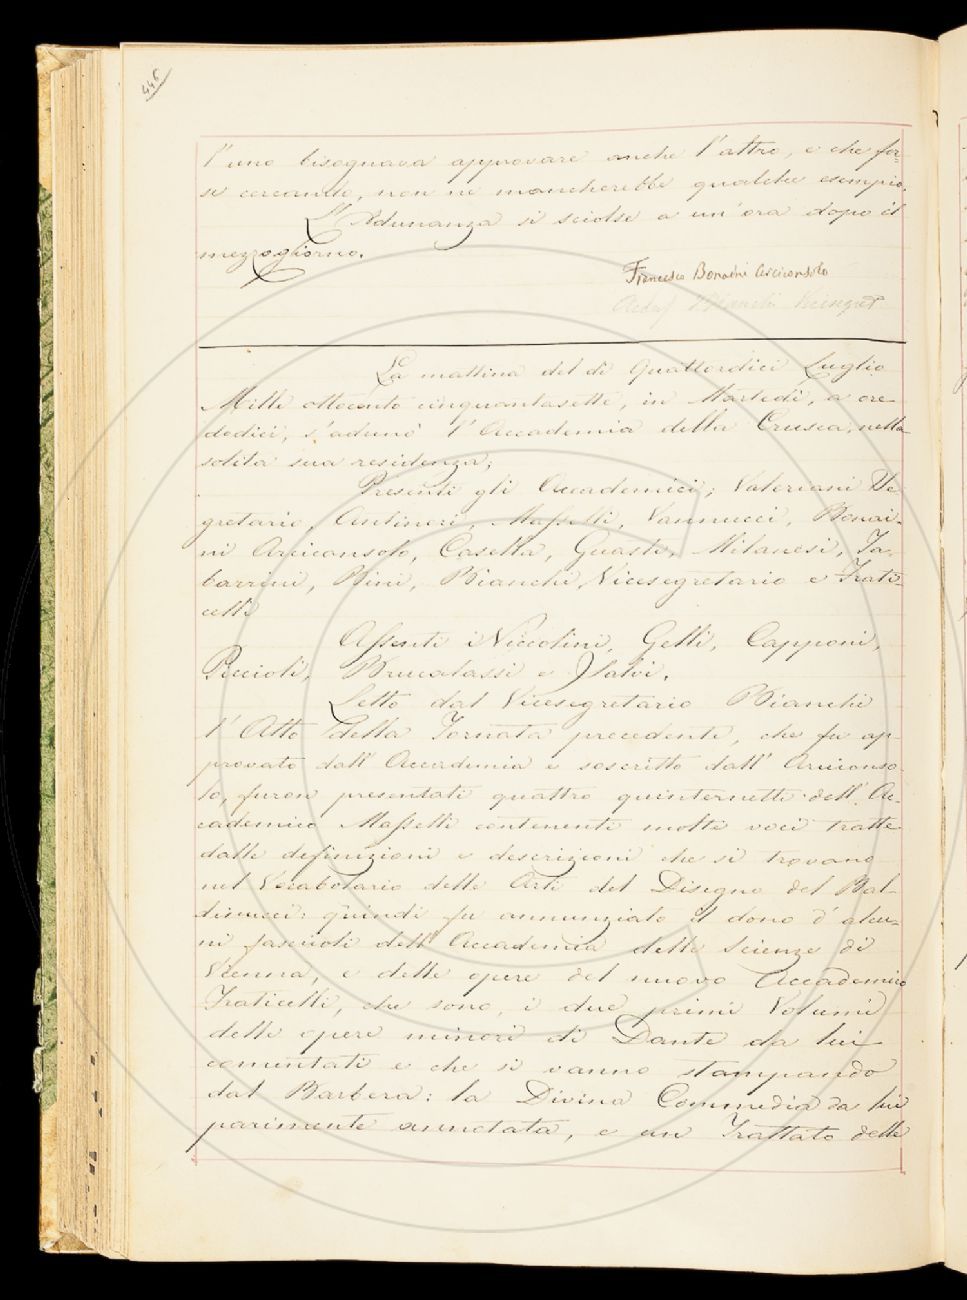 446
l'uno bisognava approvare anche l'altro, e che for-
se cercando, non ne mancherebbe qualche esempio.
L'Adunanza si sciolse a un'ora dopo il
mezzogiorno.
Francesco Bonaini Arciconsolo
Bianchi Vicesegret.
La mattina del dì Quattordici Luglio
Mille ottocento cinquantasette, in Martedì, a ore
dodici, s'adunò l'Accademia della Crusca, nella
solita sua residenza;
Presenti gli Accademici; Valeriani Se
gretario, Antinori, Masselli, Vannucci, Bonai-
ni Arciconsolo, Casella, Guasti, Milanesi, Ta
barrini, Bini, Bianchi Vicesegretario e Frati-
celli
Assenti i Niccolini, Gelli, Capponi,
Piccioli, Brucalassi e Salvi.
Letto dal Vicesegretario Bianchi
l'Atto della Tornata precedente, che fu ap-
provato dall'Accademia e soscritto dall'Arciconso-
lo, furon presentati quattro quinternetti dell'Ac-
cademico Masselli contenenti molte voci tratte
dalle definizioni e descrizioni che si trovano
nel Vocabolario delle Arti del Disegno del Bal-
dinucci: quindi fu annunziato il dono d'alcu-
ni fascicoli dell'Accademia delle Scienze di
Vienna, e delle opere del nuovo Accademico
Fraticelli, che sono, i due primi Volumi
delle opere minori di Dante da lui
comentati e che si vanno stampando
dal Barbera: la Divina Commedia da lui
parimente annotata, e un Trattato delle